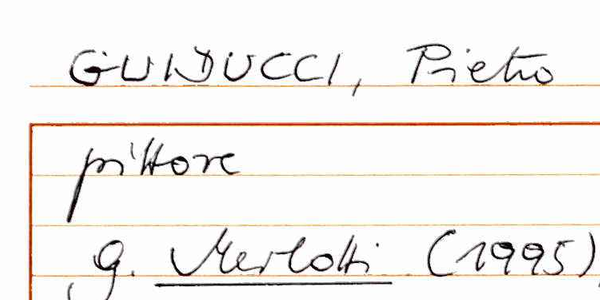 GUIDUCCI, Pietro
pittore
g. Merlotti (1995)